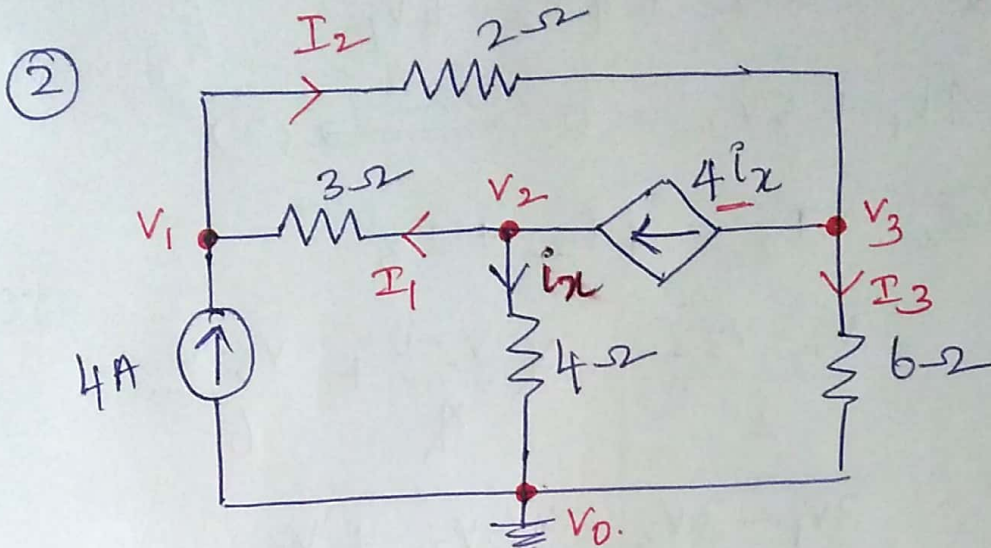 2
I2
2Ω
3Ω
V2
4ix
V1
V3
I1
ix
I3
4A
4Ω
6Ω
V0.